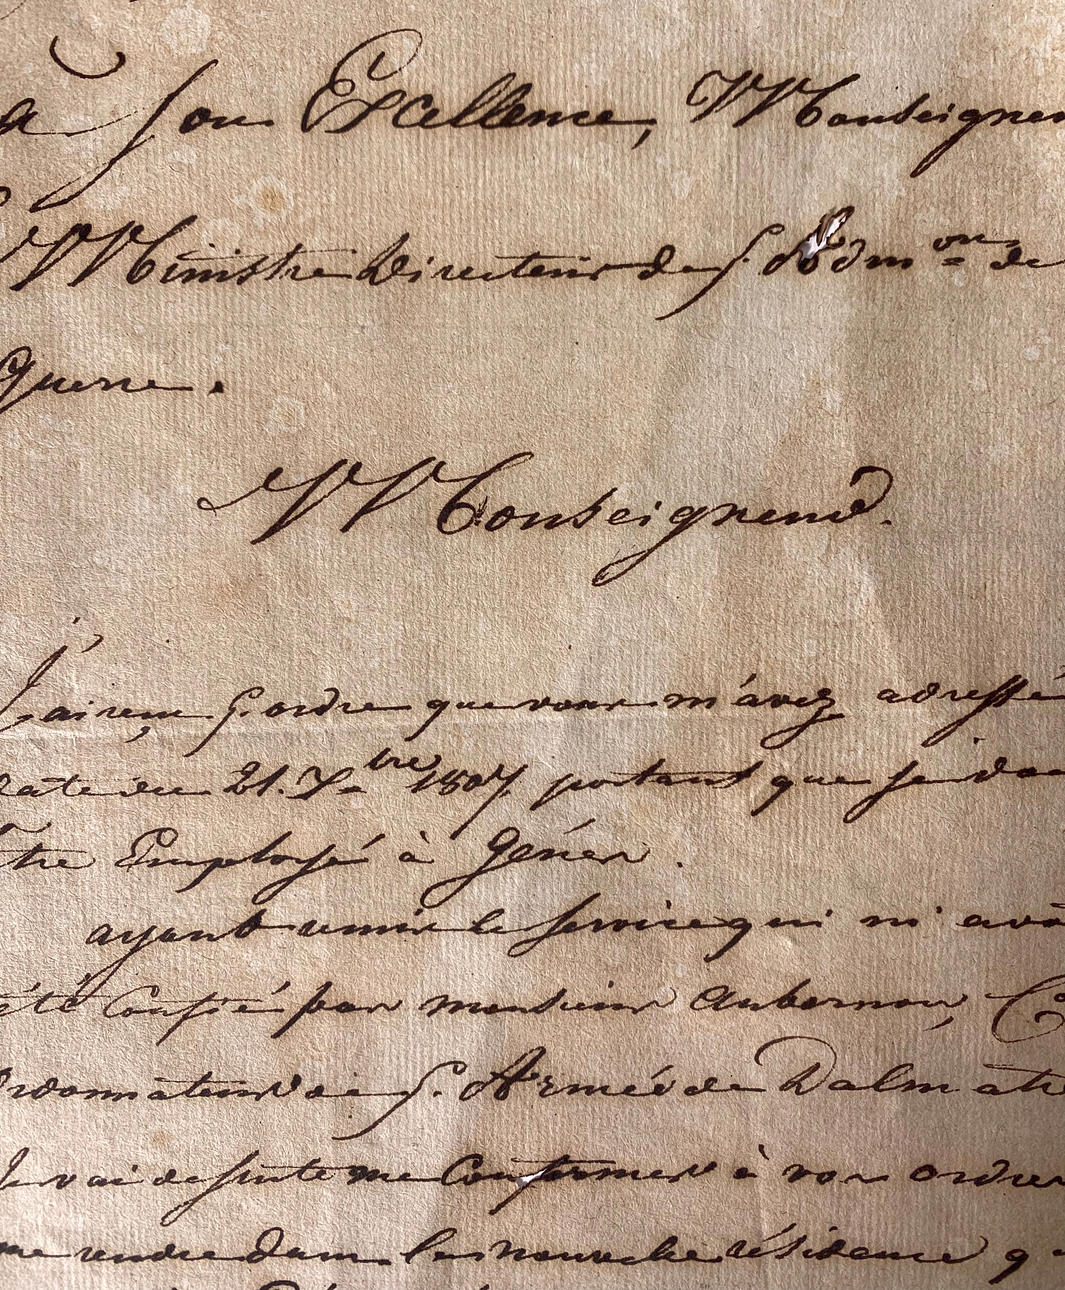 a Son Excellence, Monseigneur
Ministre Directeur de l'Adm.on de
Guerre.
Monseigneur.
J'ai reçu l'ordre que vous m'avez adressé
date du 21. X.bre 1807. portant que je dois
tre Employé à Gênes.
ayant remis le service qui m'avoi
été Confié par monsieur Aubernon, C
Ordonnateur de l'Armée de Dalmatie
Je vai de suite me Conformer à vos ordres
me rendre dans la nouvelle résidence q